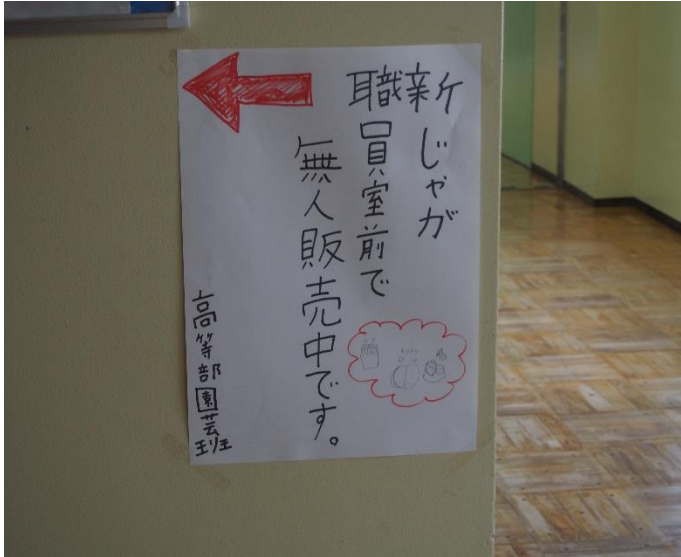 新じゃが
職員室前で
無人販売中です。
高等部園芸班